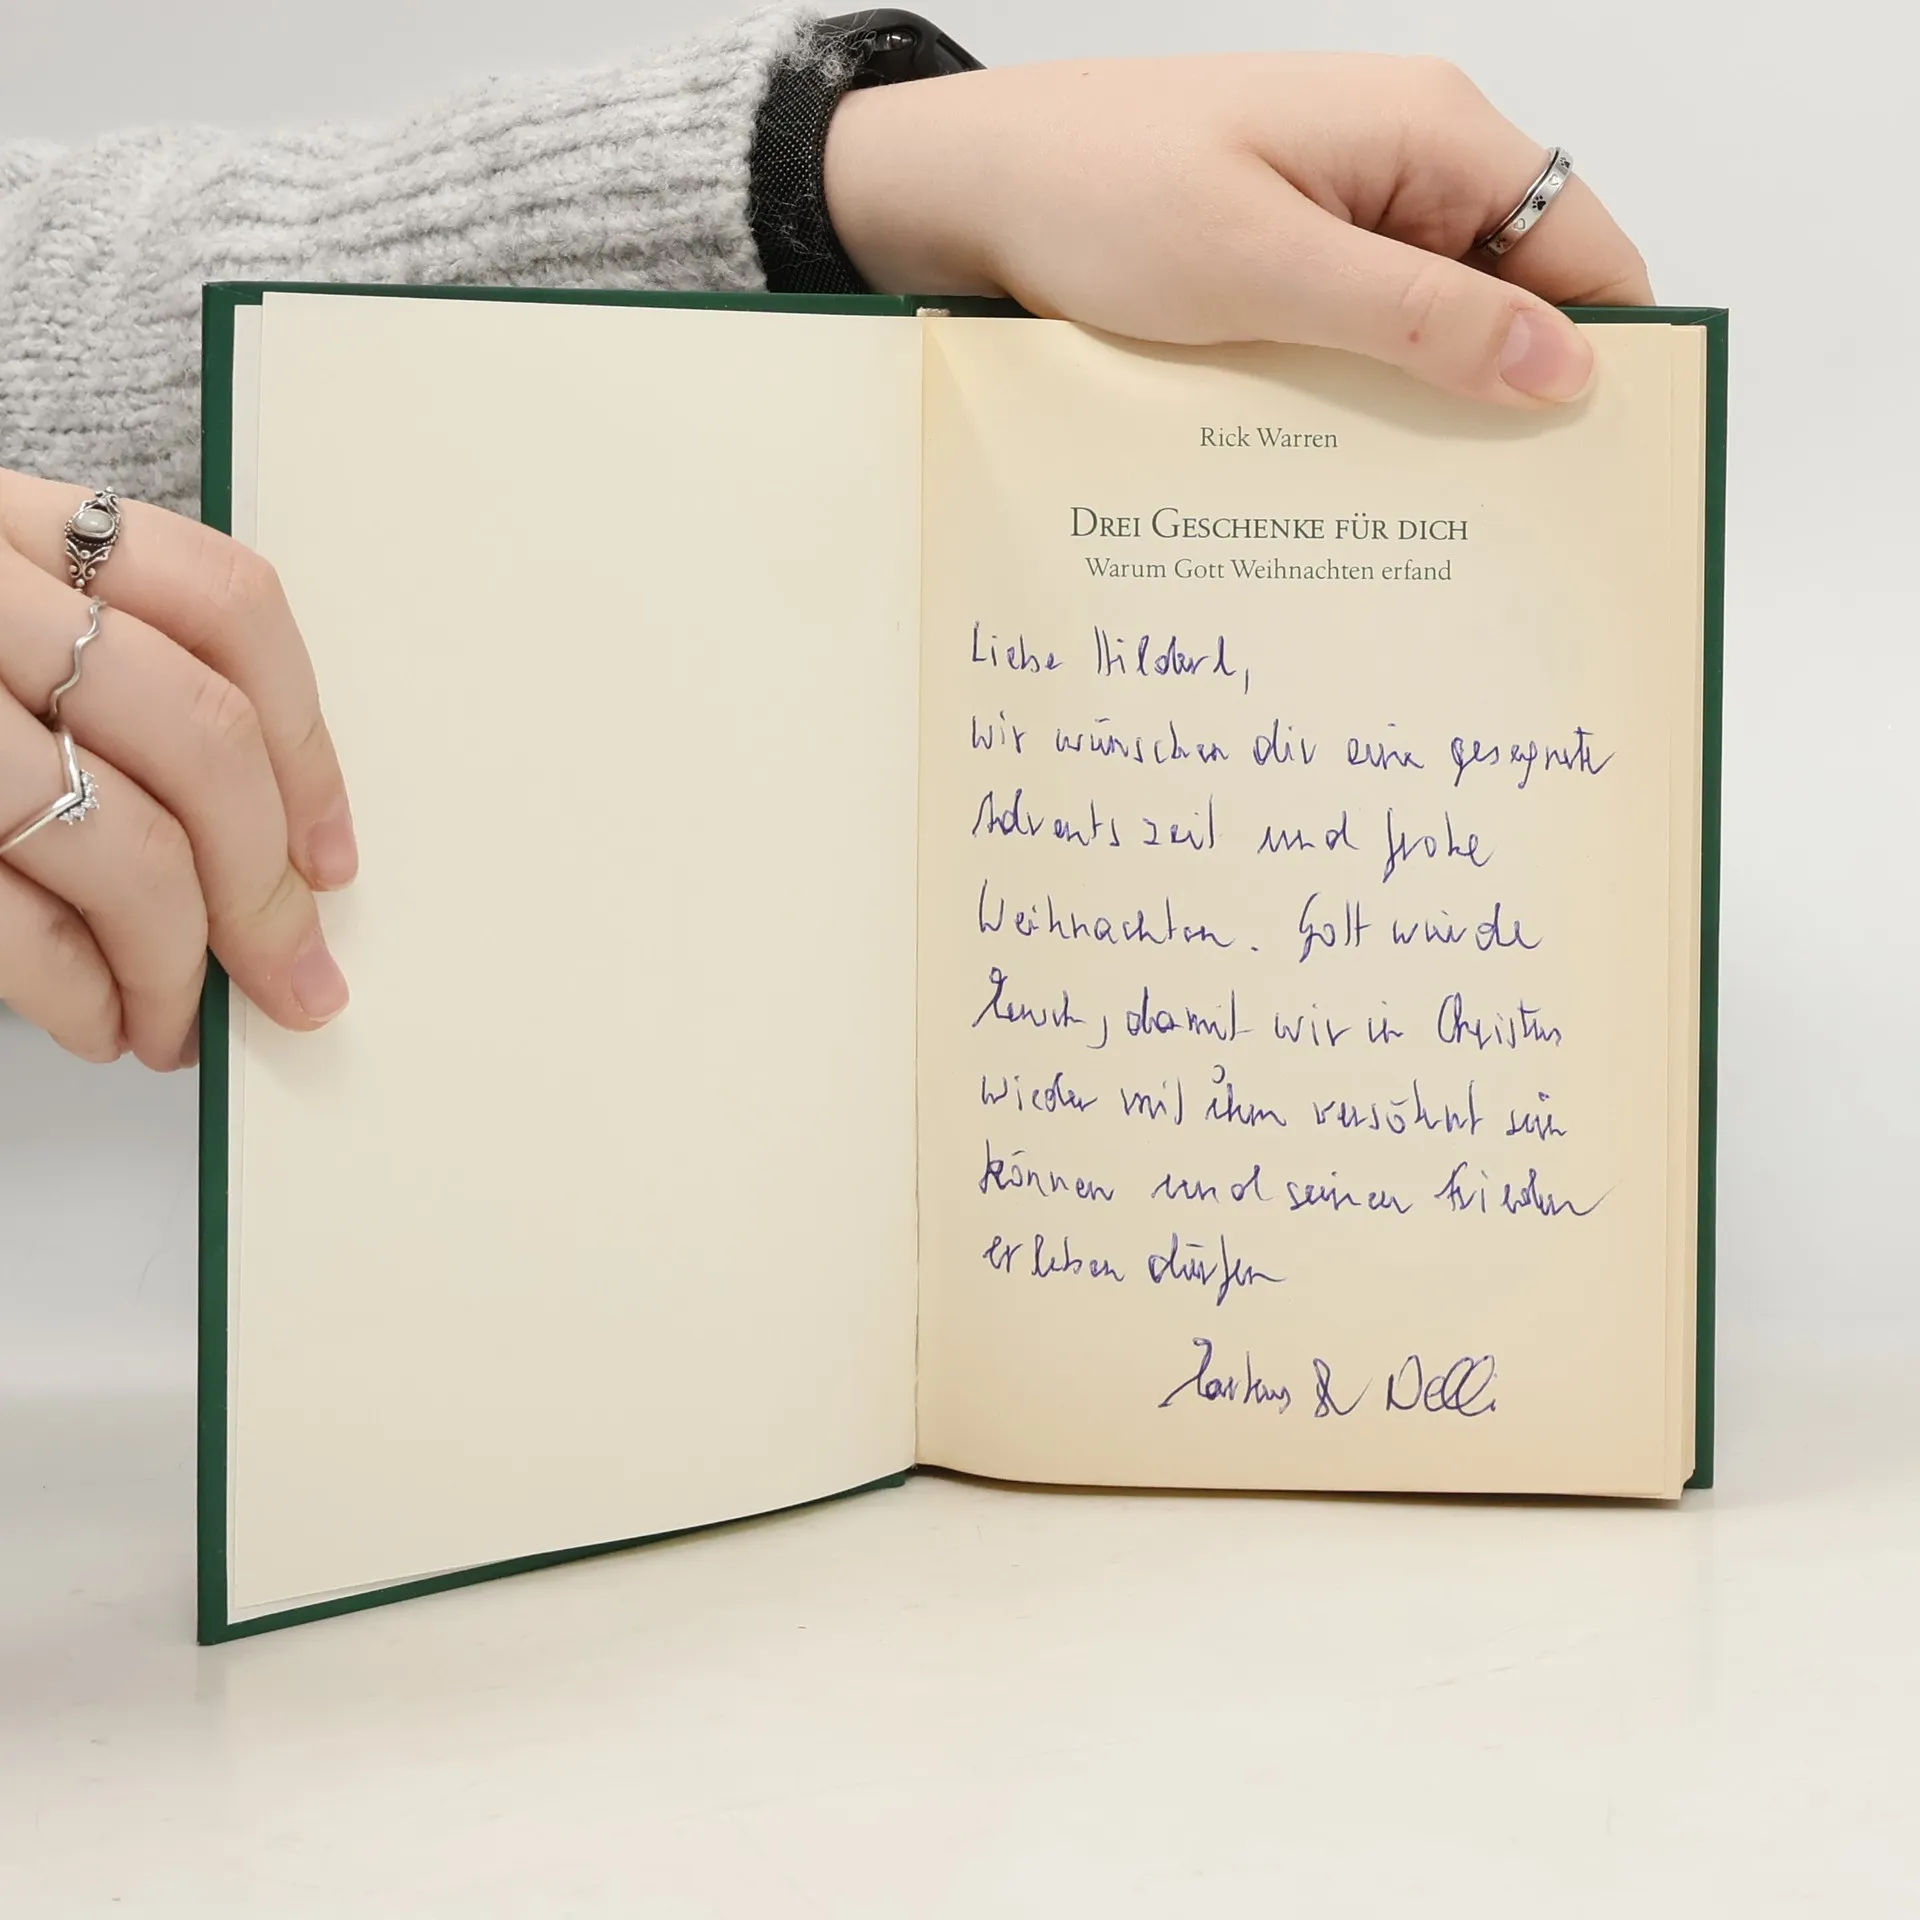 Rick Warren
DREI GESCHENKE FÜR DICH
Warum Gott Weihnachten erfand
Liebe Hilderl,
wir wünschen dir eine gesegnete
Adventszeit und frohe
Weihnachten. Gott wurde
Mensch, damit wir in Christus
wieder mit ihm versöhnt sein
können und seinen Frieden
erleben dürfen
Markus & Nelli